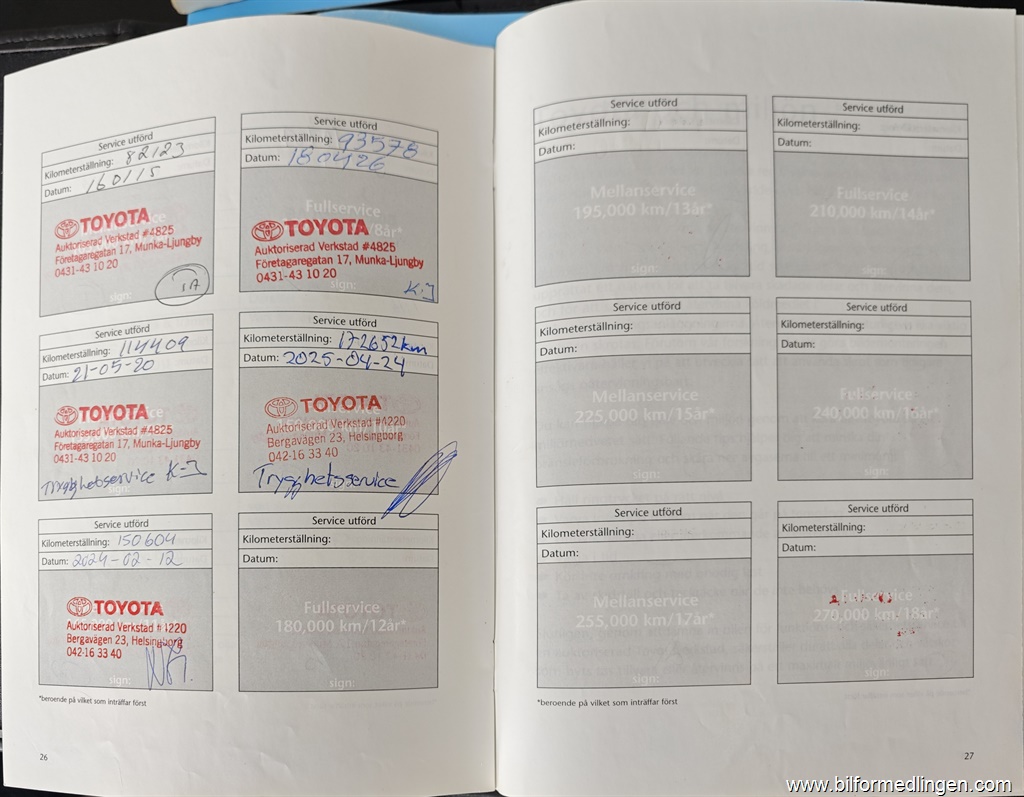 Service utförd
Kilometerställning: 82123
Datum: 160115
TOYOTA
Auktoriserad Verkstad #4825
Företagaregatan 17, Munka-Ljungby
0431-43 10 20
Service utförd
Kilometerställning: 93578
Datum: 180426
Fullservice
TOYOTA
/8år*
Auktoriserad Verkstad #4825
Företagaregatan 17, Munka-Ljungby
0431-43 10 20
sign:
K-J
Service utförd
Kilometerställning: 114409
Datum: 21-05-20
TOYOTA
Auktoriserad Verkstad #4825
Företagaregatan 17, Munka-Ljungby
0431-43 10 20
Trygghetservice K-J
Service utförd
Kilometerställning: 172652km
Datum: 2025-04-24
TOYOTA
Auktoriserad Verkstad #4220
Bergavägen 23, Helsingborg
042-16 33 40
Trygghetsservice
Service utförd
Kilometerställning: 150604
Datum: 2024-02-12
TOYOTA
Auktoriserad Verkstad #4220
Bergavägen 23, Helsingborg
042-16 33 40
sign:
Service utförd
Kilometerställning:
Datum:
Fullservice
180,000 km/12år*
sign:
*beroende på vilket som inträffar först
26
Service utförd
Kilometerställning:
Datum:
Mellanservice
195,000 km/13år*
sign:
Service utförd
Kilometerställning:
Datum:
Fullservice
210,000 km/14år*
sign:
Service utförd
Kilometerställning:
Datum:
Mellanservice
225,000 km/15år*
sign:
Service utförd
Kilometerställning:
Datum:
Fullservice
240,000 km/16år*
sign:
Service utförd
Kilometerställning:
Datum:
Mellanservice
255,000 km/17år*
sign:
Service utförd
Kilometerställning:
Datum:
Fullservice
270,000 km/18år*
sign:
*beroende på vilket som inträffar först
27
www.bilformedlingen.com